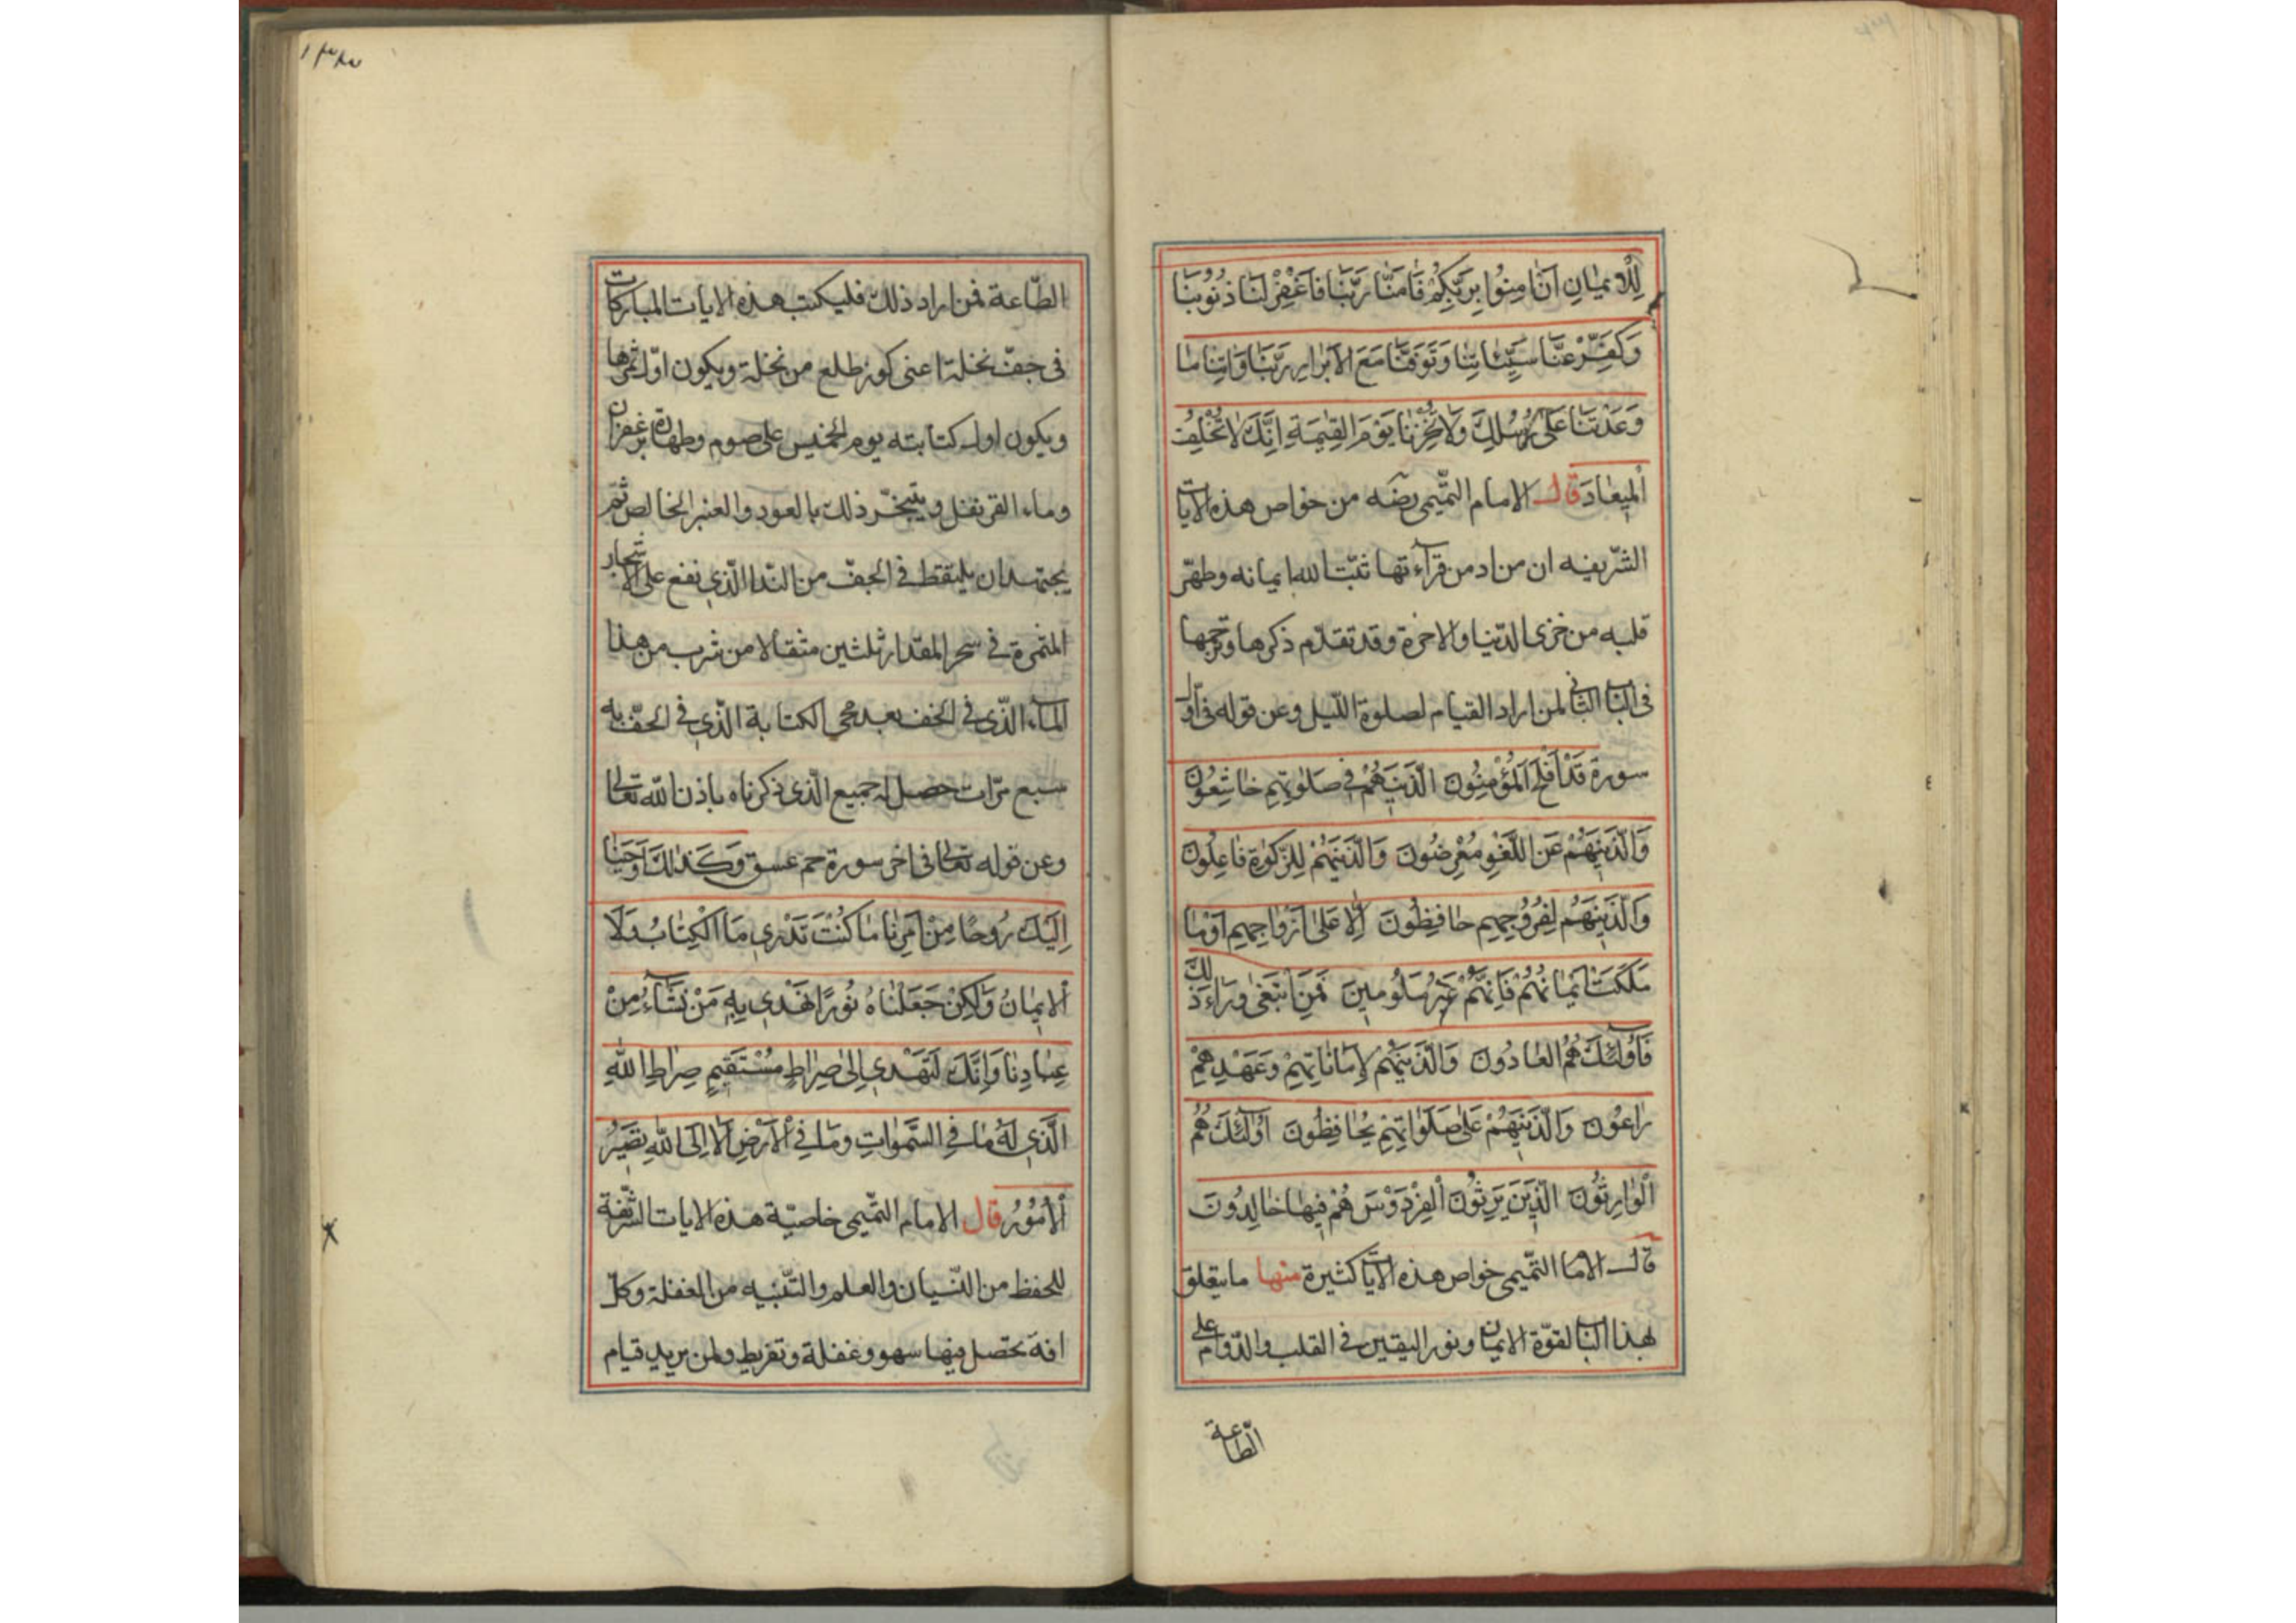 لِلْإِيمَانِ اَنْ اٰمِنُوا بِرَبِّكُمْ فَاٰمَنَّا رَبَّنَا فَاغْفِرْ لَنَا ذُنُوبَنَا
وَكَفِّرْ عَنَّا سَيِّئَاتِنَا وَتَوَفَّنَا مَعَ الْاَبْرَارِ رَبَّنَا وَاٰتِنَا مَا
وَعَدْتَنَا عَلٰى رُسُلِكَ وَلَا تُخْزِنَا يَوْمَ الْقِيٰمَةِ اِنَّكَ لَا تُخْلِفُ
الْمِيعَادَ قال الامام التّميمى رضه من خواص هذه الايات
الشّريفه ان من ادمن قرآءتها ثبّت الله ايمانه وطهّر
قلبه من خزى الدّنيا والاخرة وقد تقدّم ذكرها وترجمها
فى الباب الثانى لمن اراد القيام لصلوة اللّيل وعن قوله فى اوّل
سورة قَدْ اَفْلَحَ الْمُؤْمِنُونَ الَّذِينَ هُمْ فِى صَلٰوتِهِمْ خَاشِعُونَ
وَالَّذِينَ هُمْ عَنِ اللَّغْوِ مُعْرِضُونَ وَالَّذِينَ هُمْ لِلزَّكٰوةِ فَاعِلُونَ
وَالَّذِينَ هُمْ لِفُرُوجِهِمْ حَافِظُونَ اِلَّا عَلٰى اَزْوَاجِهِمْ اَوْ مَا
مَلَكَتْ اَيْمَانُهُمْ فَاِنَّهُمْ غَيْرُ مَلُومِينَ فَمَنِ ابْتَغٰى وَرَاءَ ذٰلِكَ
فَاُولٰئِكَ هُمُ الْعَادُونَ وَالَّذِينَ هُمْ لِاَمَانَاتِهِمْ وَعَهْدِهِمْ
رَاعُونَ وَالَّذِينَ هُمْ عَلٰى صَلَوَاتِهِمْ يُحَافِظُونَ اُولٰئِكَ هُمُ
الْوَارِثُونَ الَّذِينَ يَرِثُونَ الْفِرْدَوْسَ هُمْ فِيهَا خَالِدُونَ
قال الامام التّميمى خواص هذه الايات كثيرة منها ما يتعلق
بهذا الباب لقوّة الايمان ونور اليقين فى القلب والدّوام على
الطّاعة
١٣٣
الطّاعة فمن اراد ذلك فليكتب هذه الايات المباركات
فى جفّ نخلة اعنى كوز طلع من نخلة ويكون اوّل ثمرها
ويكون اول كتابته يوم الخميس على صوم وطهارة بزعفران
وماء القرنفل ويتبخّر ذلك بالعود والعنبر الخالص ثمّ
يجتهد ان يلتقط فى الجفّ من النّدا الّذى نفع على الاشجار
المثمرة فى سحر المقدار ثلثين مثقالا من شرب من هذا
المآء الّذى فى الجف بعد محى الكتابة الّذى فى الجفّ به
سبع مرّات حصل له جميع الّذى ذكرناه باذن الله تعالى
وعن قوله تعالى فى اخر سورة حم عسق وَكَذٰلِكَ اَوْحَيْنَا
اِلَيْكَ رُوحًا مِنْ اَمْرِنَا مَا كُنْتَ تَدْرِى مَا الْكِتَابُ وَلَا
الْاِيمَانُ وَلٰكِنْ جَعَلْنَاهُ نُورًا نَهْدِى بِهِ مَنْ نَشَآءُ مِنْ
عِبَادِنَا وَاِنَّكَ لَتَهْدِى اِلٰى صِرَاطٍ مُسْتَقِيمٍ صِرَاطِ اللّٰهِ
الَّذِى لَهُ مَا فِى السَّمٰوَاتِ وَمَا فِى الْاَرْضِ اَلَا اِلَى اللّٰهِ تَصِيرُ
الْاُمُورُ قال الامام التّميمى خاصيّة هذه الايات الشّريفة
للحفظ من النّسيان والعلم والتّنبيه من الغفلة وكلّ
افة يحصل فيها سهو وغفلة وتفريط ولمن يريد قيام